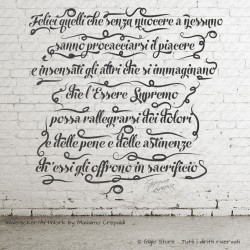 Felici quelli che senza nuocere a nessuno
sanno procacciarsi il piacere
e insensati gli altri che si immaginano
che l'Essere Supremo
possa rallegrarsi dei dolori
e delle pene e delle astinenze
ch'essi gli offrono in sacrificio
© Gigio Store - Tutti i diritti riservati